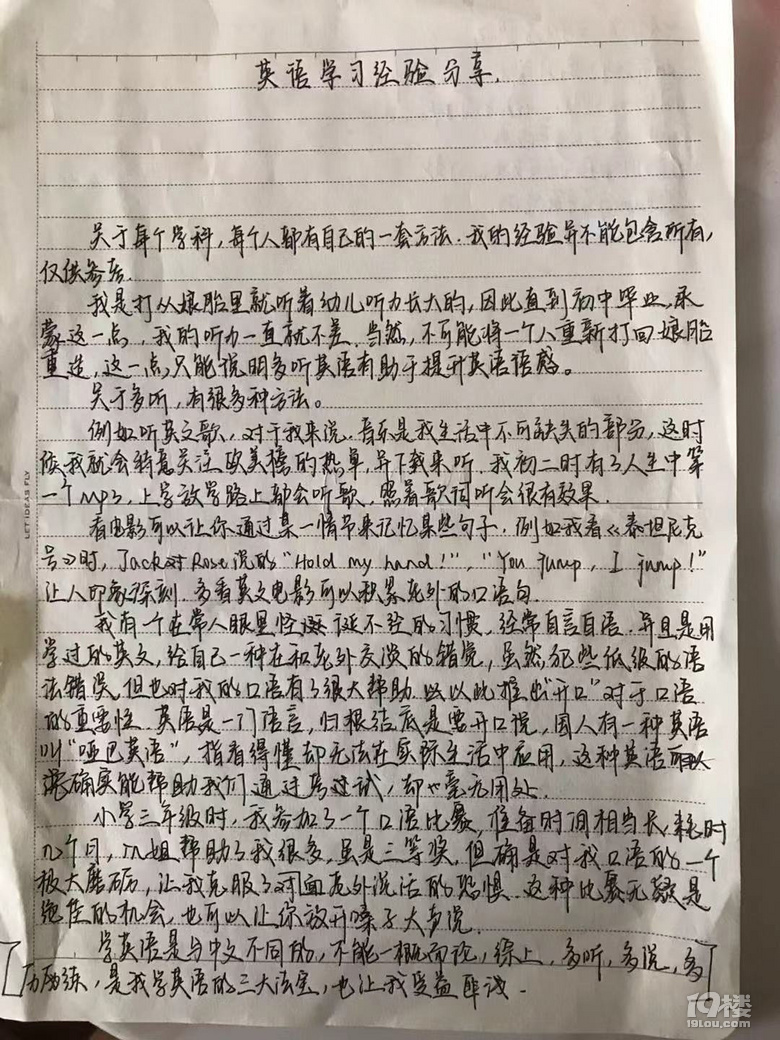 英语学习经验分享.
关于每个学科,每个人都有自己的一套方法.我的经验并不能包含所有,
仅供参考.
我是打从娘胎里就听着幼儿听力长大的,因此直到初中毕业,承
蒙这一点,我的听力一直就不差.当然,不可能将一个人重新打回娘胎
重造,这一点只能说明多听英语有助于提升英语语感。
关于多听,有很多种方法。
例如听英文歌,对于我来说,音乐是我生活中不可缺失的部分,这时
候我就会特意关注欧美榜的热单,并下载来听.我初二时有了人生中第
一个mp3,上学放学路上都会听歌,照着歌词听会很有效果.
看电影可以让你通过某一情节来记忆某些句子,例如我看《泰坦尼克
号》时,Jack对Rose说的"Hold my hand!","You jump, I jump!"
让人印象深刻.多看英文电影可以积累充外的口语句.
我有一个在常人眼里怪诞不经的习惯,经常自言自语.并且是用
学过的英文,给自己一种在和老外交谈的错觉,虽然犯些低级的语
法错误,但也对我的口语有了很大帮助.以以此推出"开口"对于口语
的重要性.英语是一门语言,归根结底是要开口说,国人有一种英语
叫"哑巴英语",指看得懂却无法在实际生活中应用,这种英语
确实能帮助我们通过考试,却也毫无用处.
小学三年级时,我参加了一个口语比赛,准备时间相当长,耗时
几个月,姐帮助了我很多,虽是三等奖,但确是对我口语的一个
极大磨砺,让我克服了对面老外说话的恐惧.这种比赛无疑是
绝佳的机会,也可以让你放开嗓子大声说.
学英语是与中文不同的,不能一概而论,综上,多听,多说,多
历练,是我学英语的三大法宝,也让我受益匪浅.
LET IDEAS FLY
19楼
19lou.com